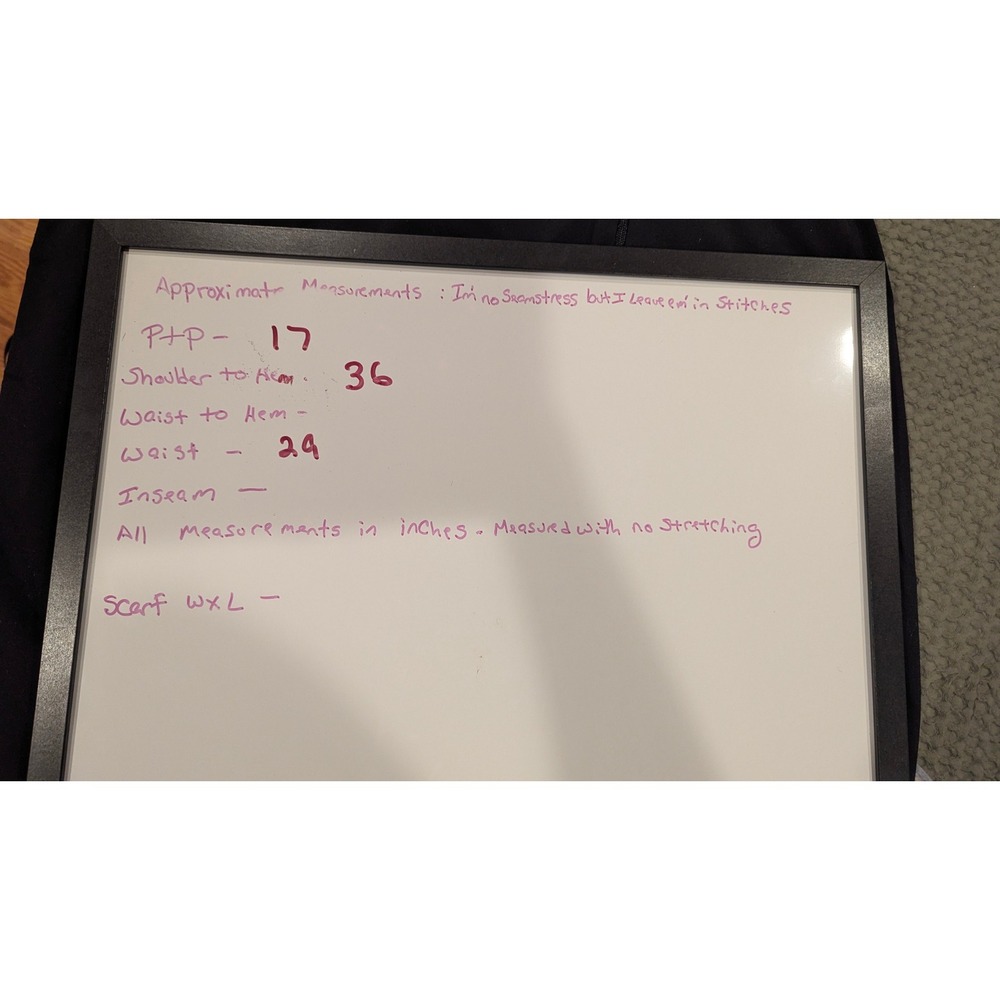 Approximate Measurements : I'm no Seamstress but I Leave em in Stitches
PtP - 17
Shoulder to Hem - 36
Waist to Hem -
Waist - 29
Inseam -
All measurements in inches. Measured with no Stretching
Scarf WxL -